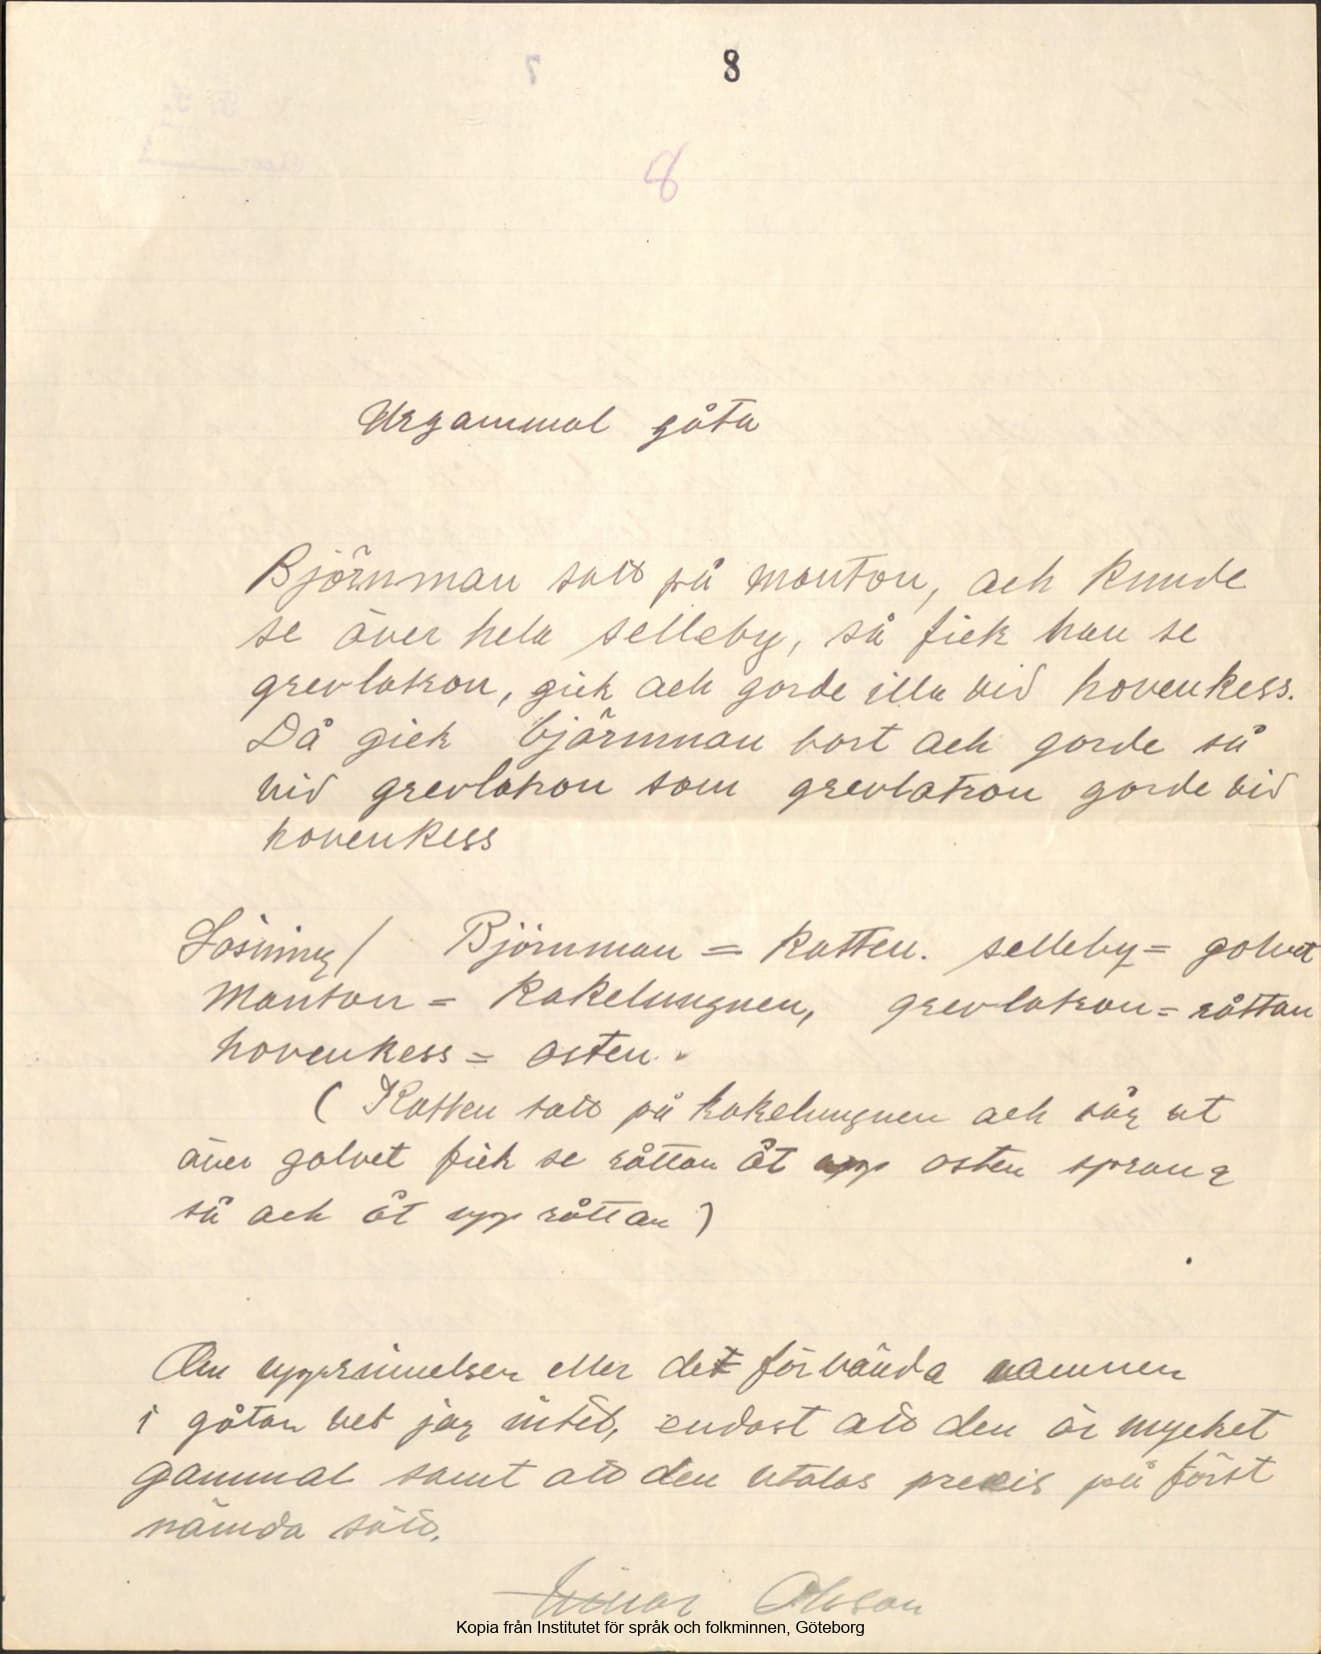 8
8
Urgammal gåta
Björnman satt på monton, och kunde
se över hela selleby, så fick han se
grevlatron, gick och gorde illa vid hovenkess.
Då gick björnman bort och gorde så
vid grevlatron som grevlatron gorde vid
hovenkess
Lösning / Björnman = katten. selleby = golvet
Monton = kakelungnen, grevlatron = råttan
hovenkess = osten.
( Katten satt på kakelungnen och såg ut
över golvet fick se råttan åt upp osten sprang
så och åt upp råttan )
Om upprinnelsen eller det förbända namnen
i gåtan vet jag intet, endast att den är mycket
gammal samt att den utalas precis på först
nämda sätt.
Einar Olsson
Kopia från Institutet för språk och folkminnen, Göteborg